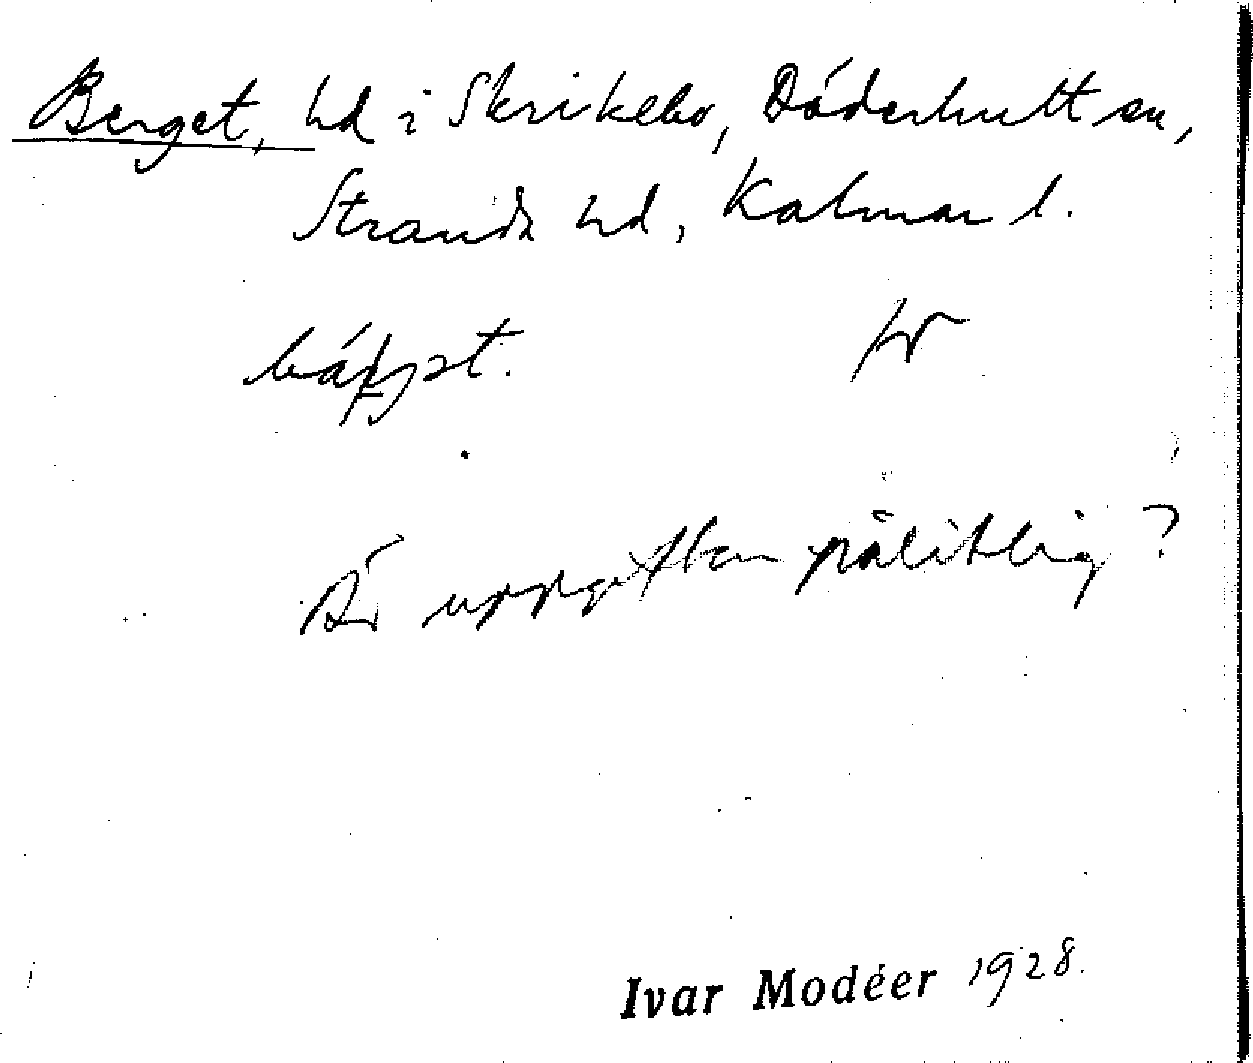 Berget, hd i Skrikebo, Döderhult sn,
Stranda hd, Kalmar l.
Är uppgiften pålitlig?
Ivar Modéer 1928.